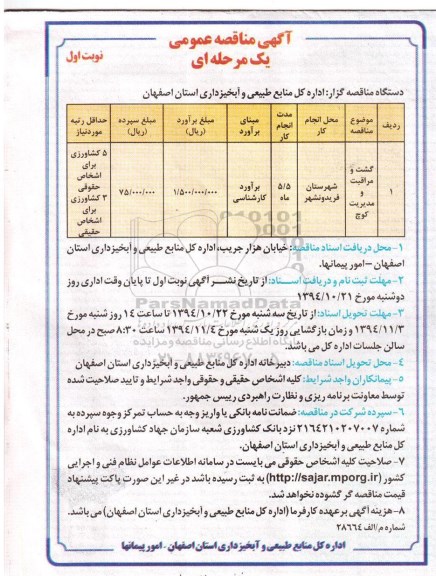 آگهی مناقصه عمومی
یک مرحله ای
نوبت اول
دستگاه مناقصه گزار: اداره کل منابع طبیعی و آبخیزداری استان اصفهان
ردیف | موضوع مناقصه | محل انجام کار | مدت انجام کار | مبنای برآورد | مبلغ برآورد (ریال) | مبلغ سپرده (ریال) | حداقل رتبه موردنیاز
۱ | گشت و مراقبت و مدیریت کوچ | شهرستان فریدونشهر | ۵/۵ ماه | برآورد کارشناسی | ۱/۵۰۰/۰۰۰/۰۰۰ | ۷۵/۰۰۰/۰۰۰ | ۵ کشاورزی برای اشخاص حقوقی ۳ کشاورزی برای اشخاص حقیقی
۱- محل دریافت اسناد مناقصه: خیابان هزار جریب، اداره کل منابع طبیعی و آبخیزداری استان
اصفهان – امور پیمانها.
۲- مهلت ثبت نام و دریافت اسناد: از تاریخ نشر آگهی نوبت اول تا پایان وقت اداری روز
دوشنبه مورخ ۱۳۹۴/۱۰/۲۱
۳- مهلت تحویل اسناد: از تاریخ سه شنبه مورخ ۱۳۹۴/۱۰/۲۲ تا ساعت ۱۴ روز شنبه مورخ
۱۳۹۴/۱۱/۳ و زمان بازگشایی روز یک شنبه مورخ ۱۳۹۴/۱۱/۴ ساعت ۸:۳۰ صبح در محل
سالن جلسات اداره کل می باشد.
۴- محل تحویل اسناد مناقصه: دبیرخانه اداره کل منابع طبیعی و آبخیزداری استان اصفهان
۵- پیمانکاران واجد شرایط: کلیه اشخاص حقیقی و حقوقی واجد شرایط و تایید صلاحیت شده
توسط معاونت برنامه ریزی و نظارت راهبردی رییس جمهور.
۶- سپرده شرکت در مناقصه: ضمانت نامه بانکی یا واریز وجه به حساب تمرکز وجوه سپرده به
شماره ۲۱۶۴۲۱۰۲۰۷۰۰۷ نزد بانک کشاورزی شعبه سازمان جهاد کشاورزی به نام اداره
کل منابع طبیعی و آبخیزداری استان اصفهان.
۷- صلاحیت کلیه اشخاص حقوقی می بایست در سامانه اطلاعات عوامل نظام فنی و اجرایی
کشور (http://sajar.mporg.ir) به ثبت رسیده باشد در غیر این صورت پاکت پیشنهاد
قیمت مناقصه گر گشوده نخواهد شد.
۸- هزینه آگهی بر عهده کارفرما (اداره کل منابع طبیعی و آبخیزداری استان اصفهان) می باشد.
شماره م/الف ۲۸۶۶۴
اداره کل منابع طبیعی و آبخیزداری استان اصفهان - امور پیمانها